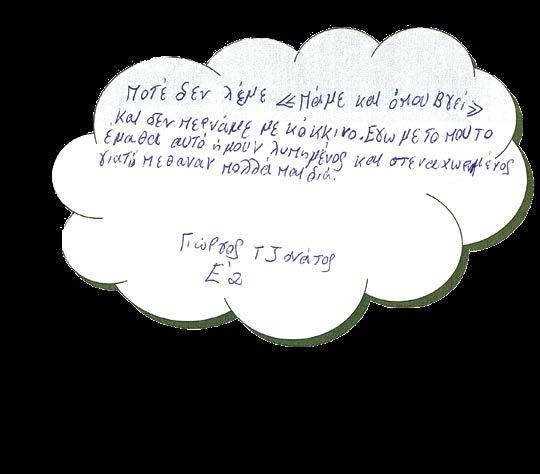 Ποτέ δεν λέμε «Πάμε και όπου βγεί»
και δεν περνάμε με κόκκινο. Εγω με το που το
έμαθα αυτό ήμουν λυπημένος και στεναχωρημένος
γιατί πεθαναν πολλά παιδιά.
Γιώργος Τζονάτος
Ε'2